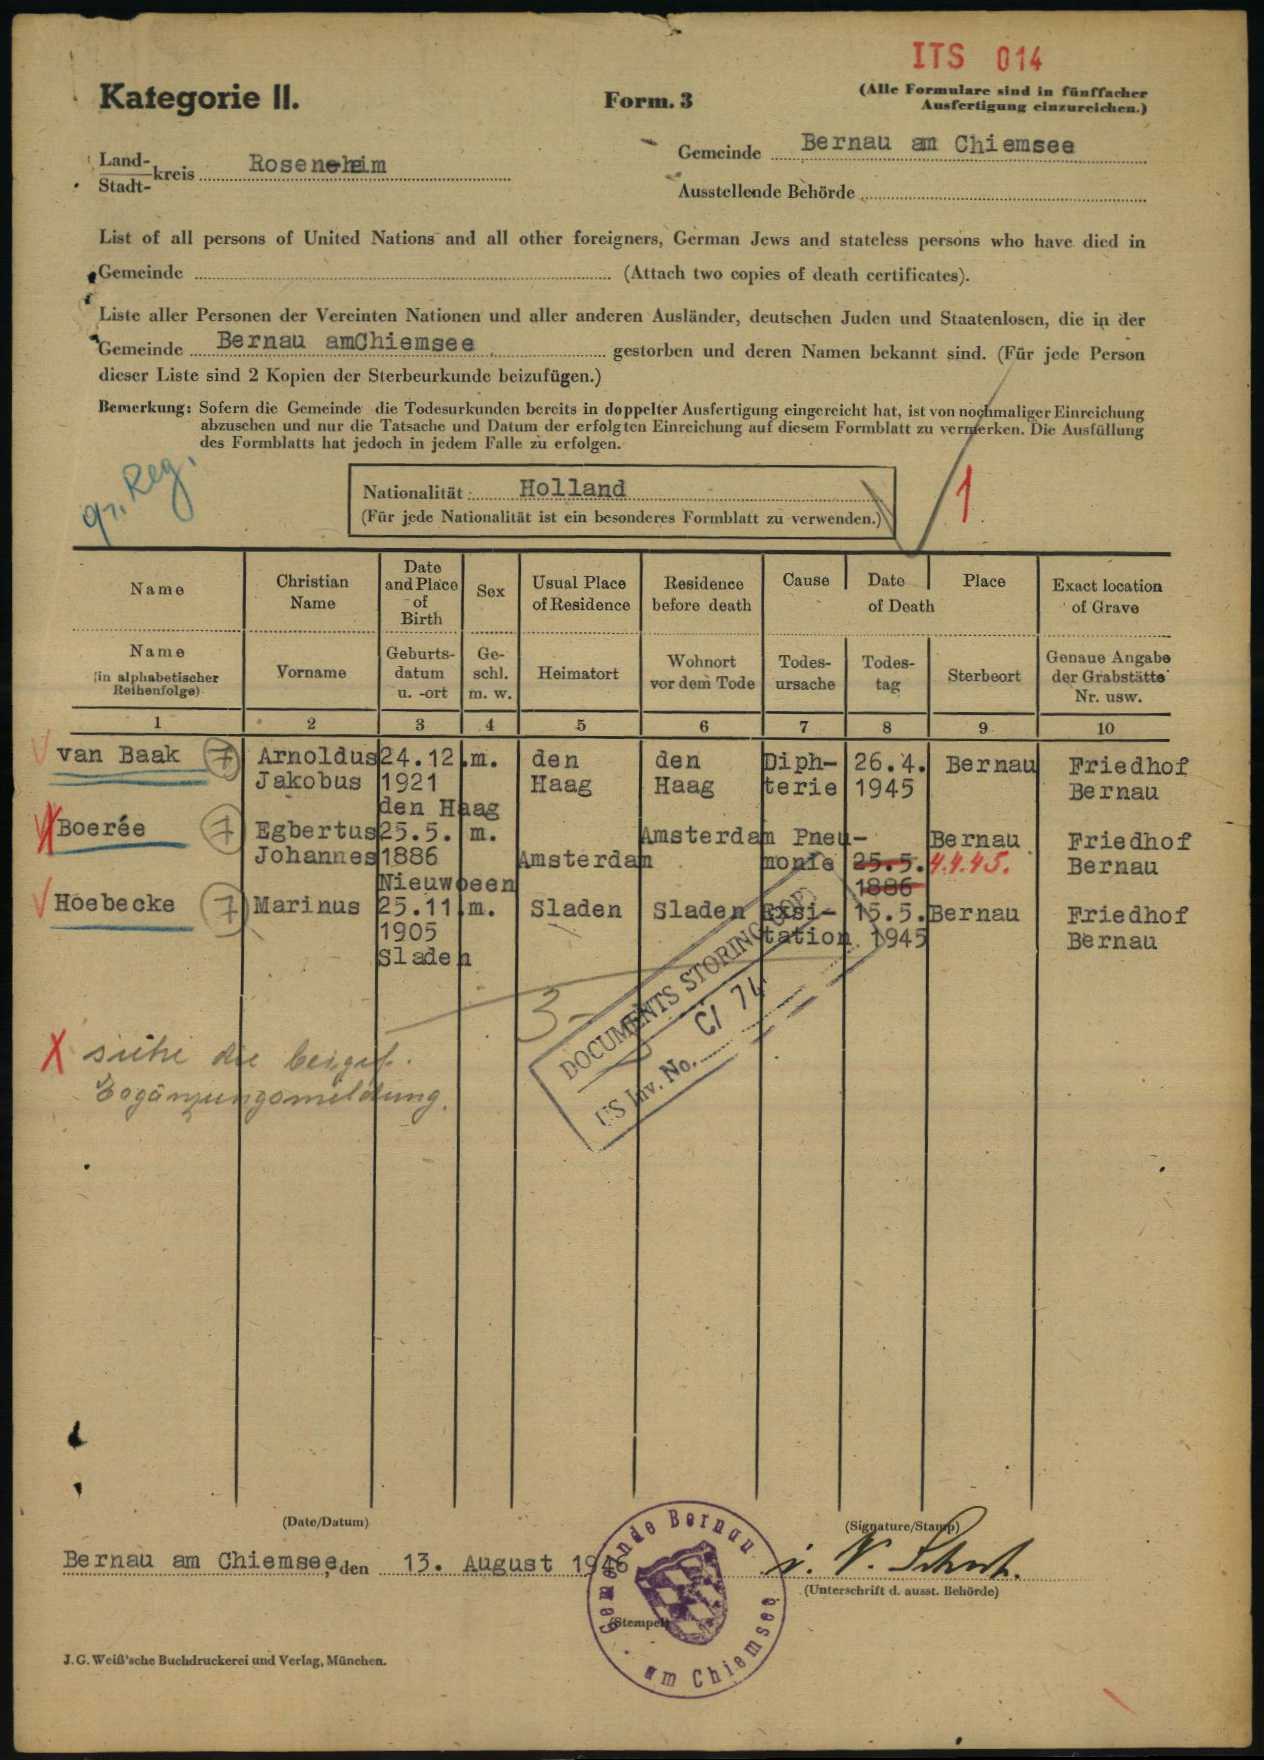 ITS 014
Kategorie II.
Form. 3
(Alle Formulare sind in fünffacher
Ausfertigung einzureichen.)
Land-
Stadt- kreis Rosenheim
Gemeinde Bernau am Chiemsee
Ausstellende Behörde
List of all persons of United Nations and all other foreigners, German Jews and stateless persons who have died in
Gemeinde (Attach two copies of death certificates).
Liste aller Personen der Vereinten Nationen und aller anderen Ausländer, deutschen Juden und Staatenlosen, die in der
Gemeinde Bernau amChiemsee gestorben und deren Namen bekannt sind. (Für jede Person
dieser Liste sind 2 Kopien der Sterbeurkunde beizufügen.)
Bemerkung: Sofern die Gemeinde die Todesurkunden bereits in doppelter Ausfertigung eingereicht hat, ist von nochmaliger Einreichung
abzusehen und nur die Tatsache und Datum der erfolgten Einreichung auf diesem Formblatt zu vermerken. Die Ausfüllung
des Formblatts hat jedoch in jedem Falle zu erfolgen.
Reg.
Nationalität: Holland
(Für jede Nationalität ist ein besonderes Formblatt zu verwenden.)
1
Name | Christian Name | Date and Place of Birth | Sex | Usual Place of Residence | Residence before death | Cause | Date of Death | Place | Exact location of Grave
Name (in alphabetischer Reihenfolge) | Vorname | Geburts- datum u. -ort | Ge- schl. m. w. | Heimatort | Wohnort vor dem Tode | Todes- ursache | Todes- tag | Sterbeort | Genaue Angabe der Grabstätte Nr. usw.
1 2 3 4 5 6 7 8 9 10
van Baak 7 Arnoldus 24.12. m. den den Diph- 26.4. Bernau Friedhof
Jakobus 1921 Haag Haag terie 1945 Bernau
den Haag
Boerée 7 Egbertus 25.5. m. Amsterdam Pneu- Bernau Friedhof
Johannes 1886 Amsterdam monie 25.5. 4.4.45. Bernau
Nieuwveen 1886
Hoebecke 7 Marinus 25.11. m. Sladen Sladen Exsi- 15.5. Bernau Friedhof
1905 tation 1945 Bernau
Sladen
3-
DOCUMENTS STORING
US Inv. No. C/ 74
X siehe die beigef.
Ergänzungsmeldung.
(Date/Datum)
(Signature/Stamp)
Bernau am Chiemsee, den 13. August 1946
i. V.
(Unterschrift d. ausst. Behörde)
(Stempel)
Gemeinde Bernau
am Chiemsee
J. G. Weiß'sche Buchdruckerei und Verlag, München.